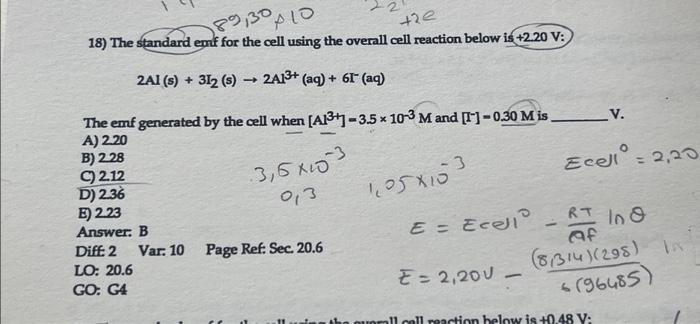 89,30 x10
+2e
18) The standard emf for the cell using the overall cell reaction below is +2.20 V:
2Al (s) + 3I₂ (s) → 2Al³⁺ (aq) + 6I⁻ (aq)
The emf generated by the cell when [Al³⁺] = 3.5 × 10⁻³ M and [I⁻] = 0.30 M is ________ V.
A) 2.20
B) 2.28
C) 2.12
D) 2.36
E) 2.23
Answer: B
Diff: 2 Var: 10 Page Ref: Sec. 20.6
LO: 20.6
GO: G4
3,5 x10⁻³
0,3
1,05 x10⁻³
Ecell° = 2,20
E = Ecell° - RT/nF ln Q
E = 2,20V - (8,314)(298)/6(96485) ln
overall cell reaction below is +0.48 V: